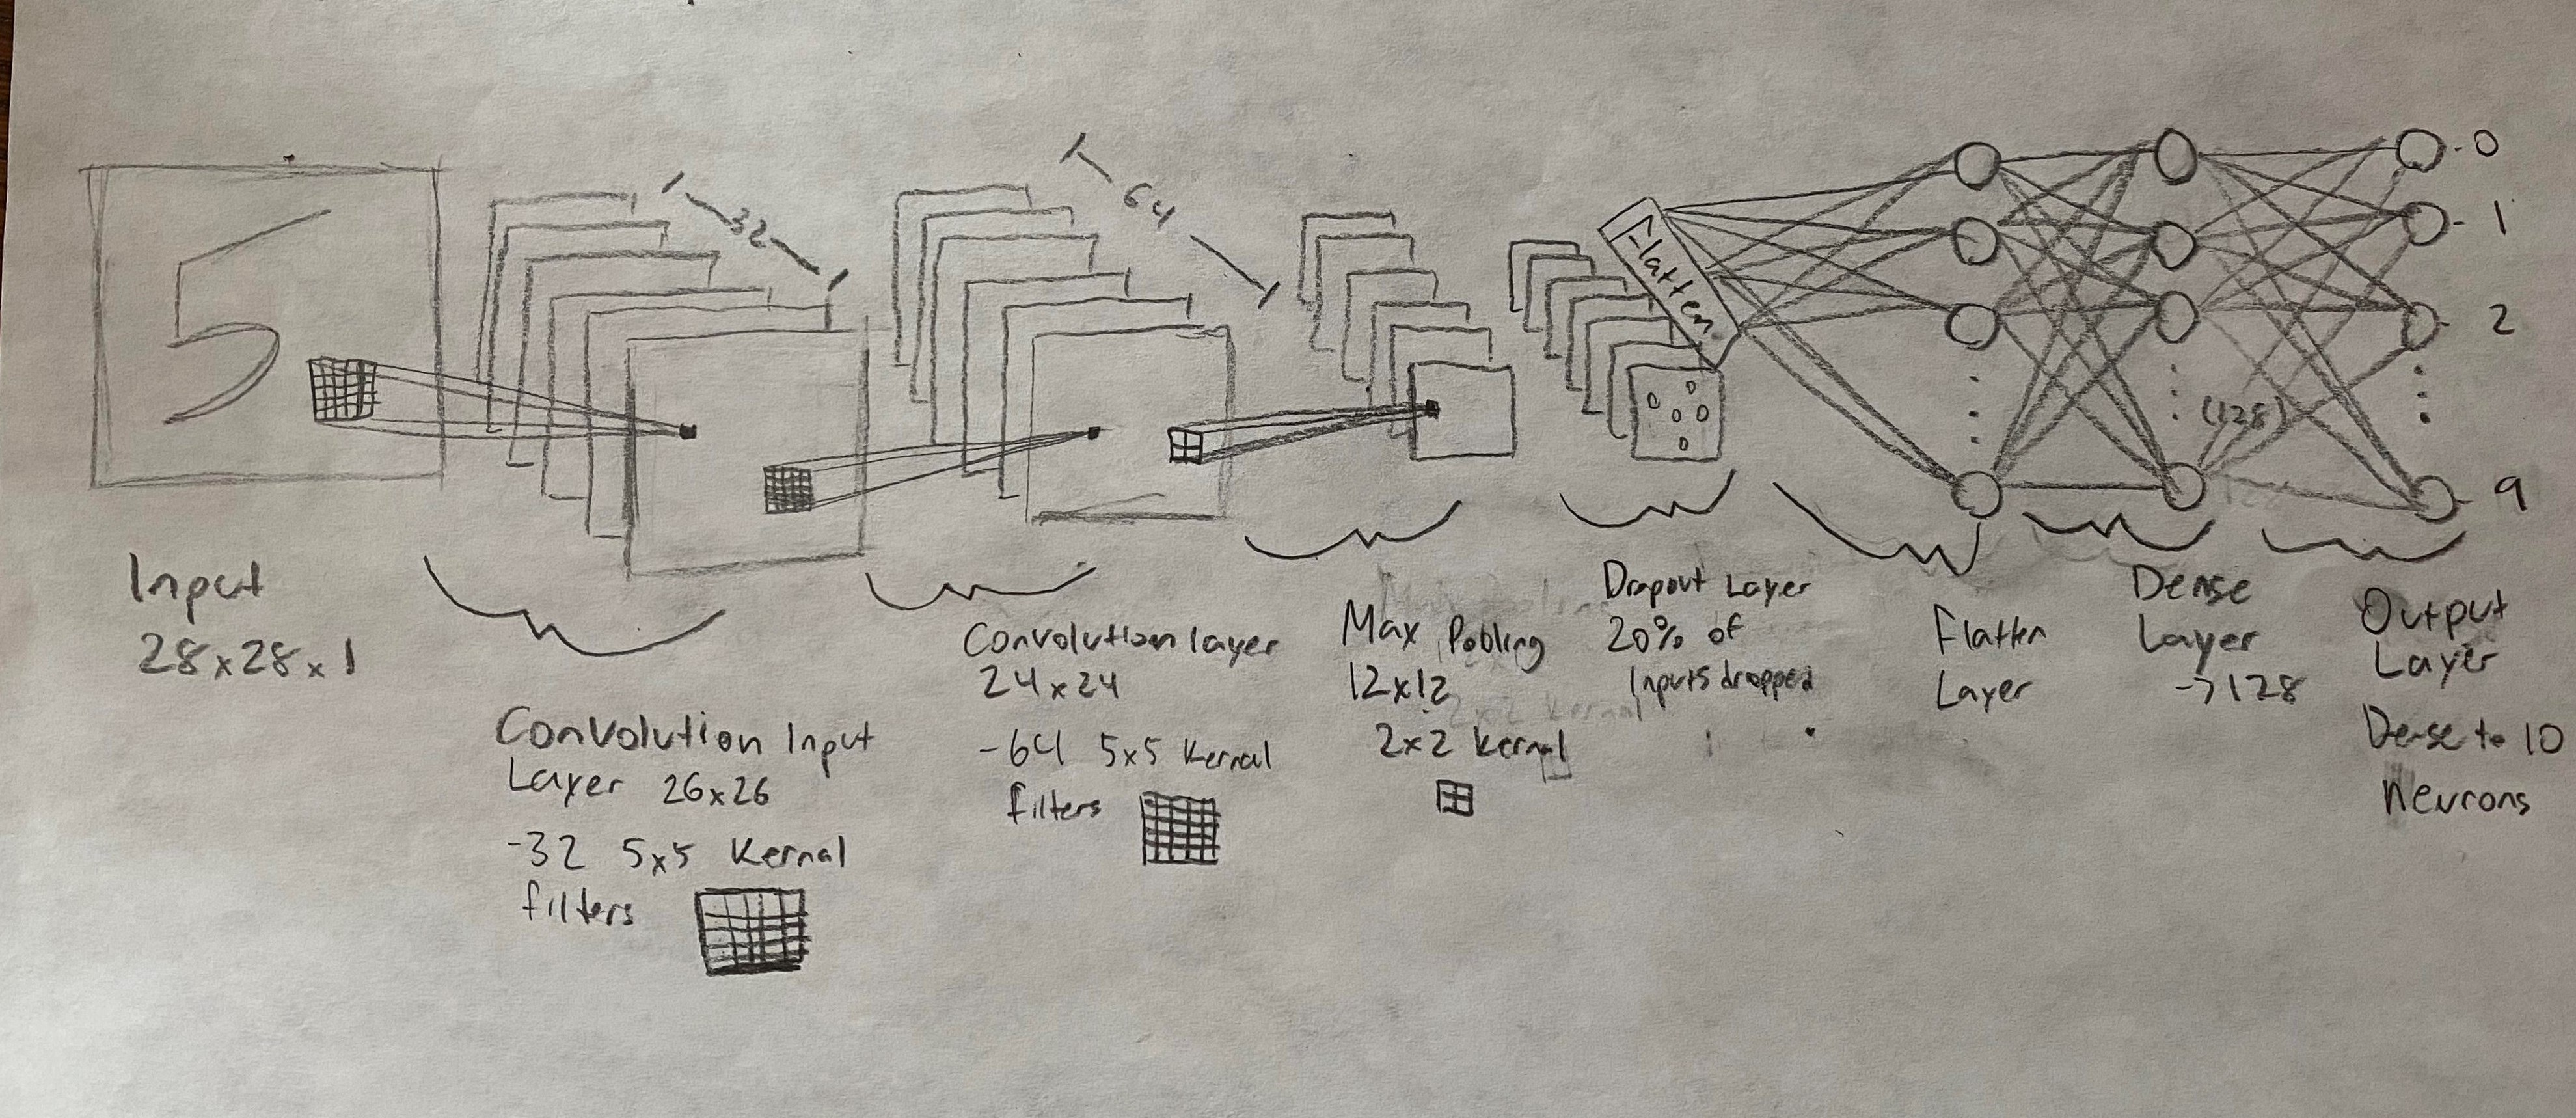 32
64
Flatten
0
1
2
(128)
9
Input
28x28x1
Convolution Input
Layer 26x26
-32 5x5 Kernal
filters
Convolution layer
24x24
-64 5x5 Kernal
filters
Max Pooling
12x12
2x2 kernal
Dropout Layer
20% of
Inputs dropped
Flatten
Layer
Dense
Layer
->128
Output
Layer
Dense to 10
Neurons